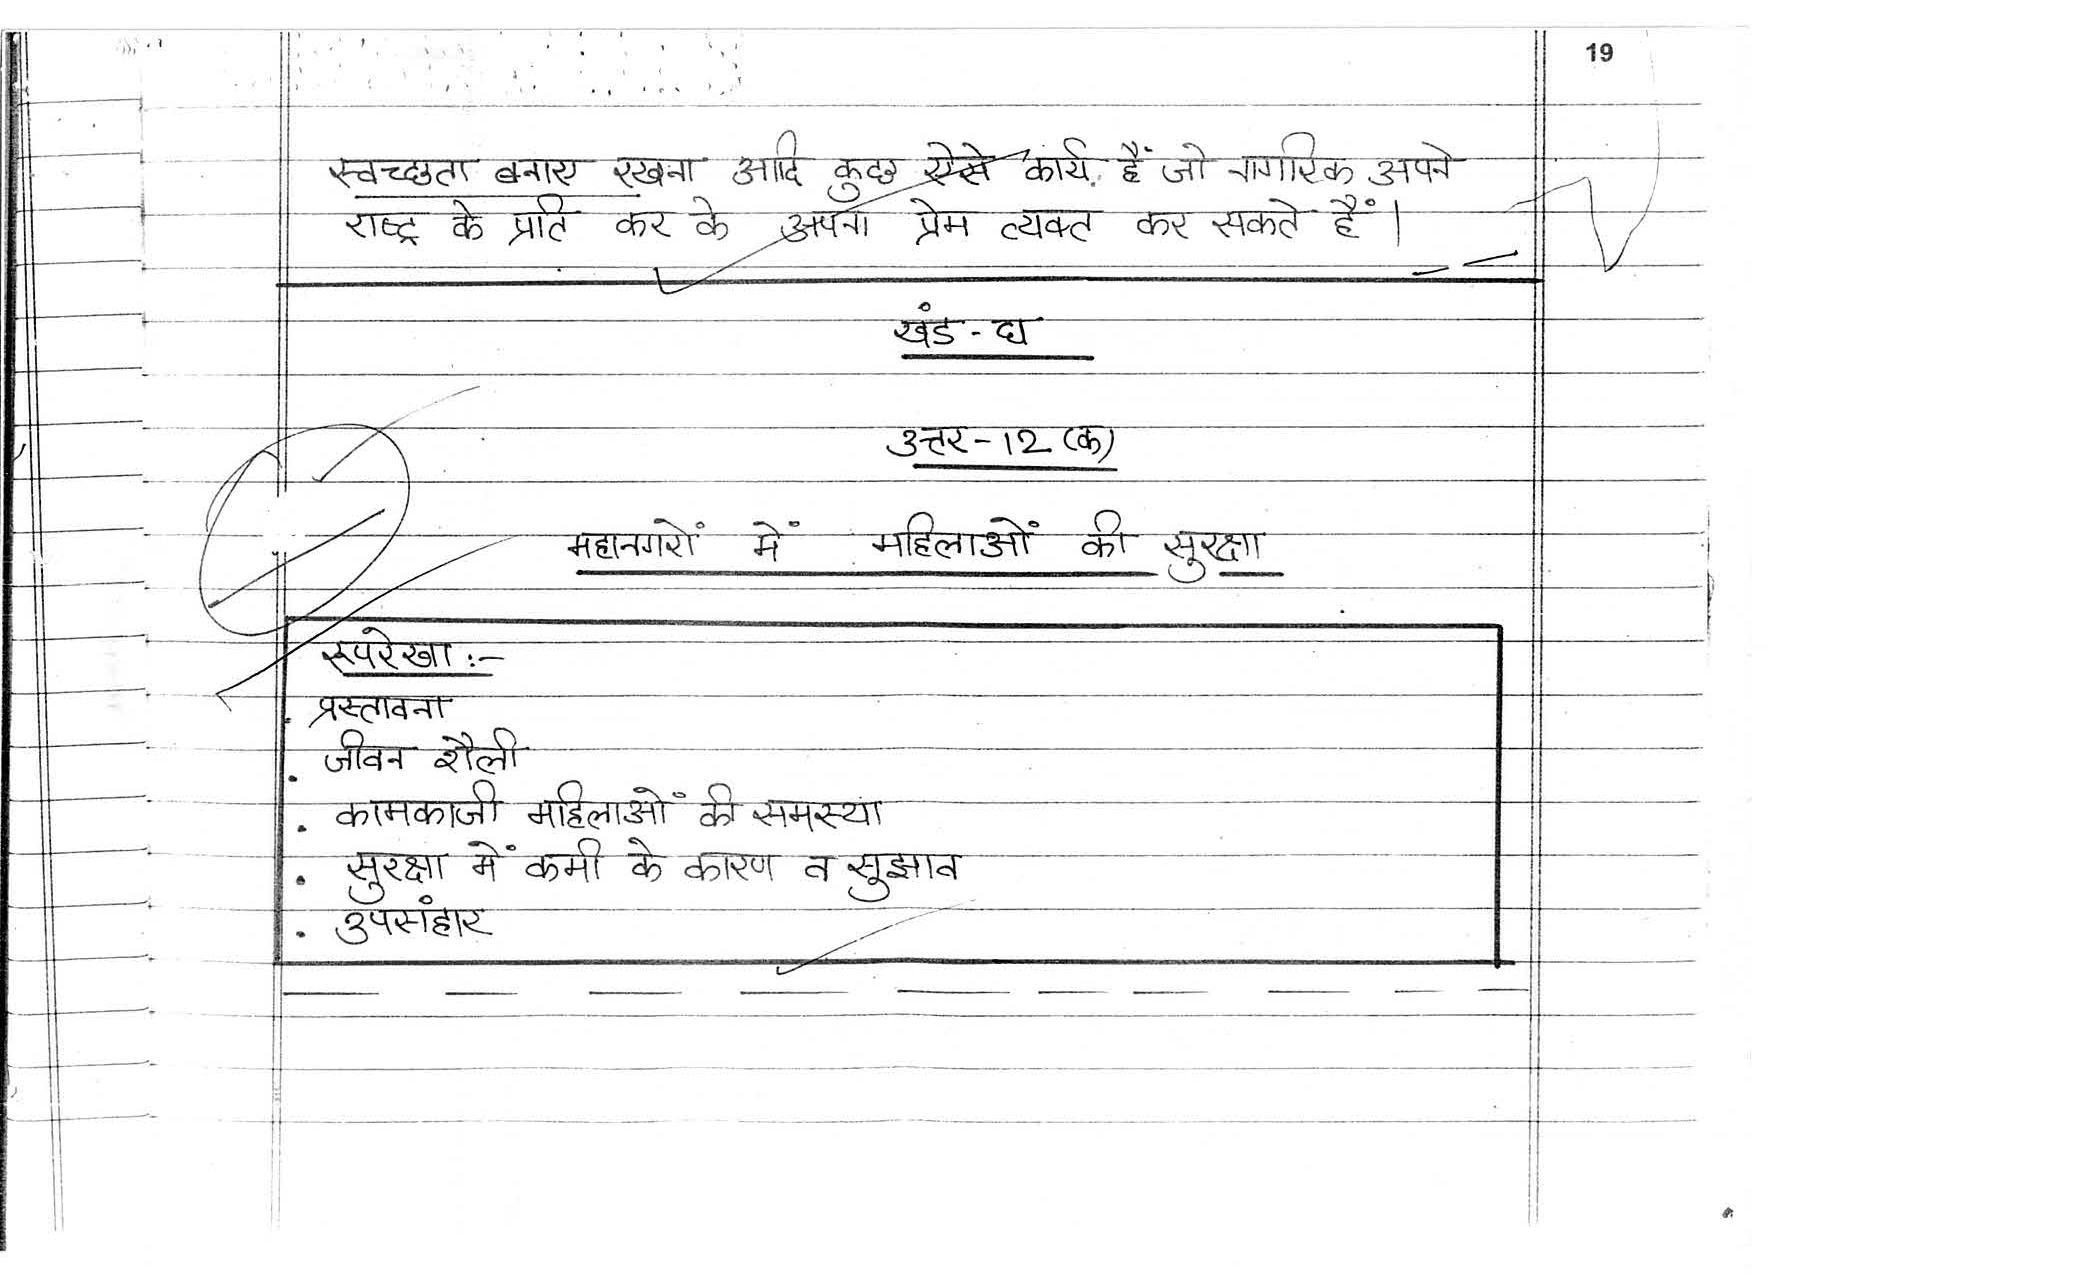 19
स्वच्छता बनाए रखना आदि कुछ ऐसे कार्य हैं जो नागरिक अपने
राष्ट्र के प्रति कर के अपना प्रेम व्यक्त कर सकते हैं।
खंड - घ
उत्तर - 12 (क)
महानगरों में महिलाओं की सुरक्षा
रूपरेखा :-
. प्रस्तावना
. जीवन शैली
. कामकाजी महिलाओं की समस्या
. सुरक्षा में कमी के कारण व सुझाव
. उपसंहार